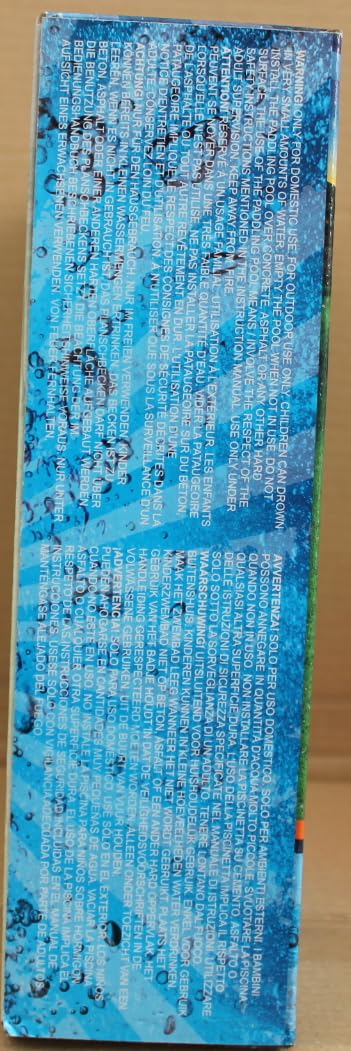 WARNING! ONLY FOR DOMESTIC USE. FOR OUTDOOR USE ONLY. CHILDREN CAN DROWN
IN VERY SMALL AMOUNTS OF WATER. EMPTY THE POOL WHEN NOT IN USE. DO NOT
INSTALL THE PADDLING POOL OVER CONCRETE, ASPHALT OR ANY OTHER HARD
SURFACE. THE USE OF THE PADDLING POOL MEANS INVOLVE THE RESPECT OF THE
SAFETY INSTRUCTIONS MENTIONED IN THE INSTRUCTION MANUAL. USE ONLY UNDER
ADULT SUPERVISION. KEEP AWAY FROM FIRE.
ATTENTION! RÉSERVÉ À UN USAGE FAMILIAL. UTILISATION À L'EXTÉRIEUR. LES ENFANTS
PEUVENT SE NOYER DANS UNE TRÈS FAIBLE QUANTITÉ D'EAU. VIDER LA PATAUGEOIRE
LORSQU'ELLE N'EST PAS UTILISÉE. NE PAS INSTALLER LA PATAUGEOIRE SUR DU BÉTON,
DE L'ASPHALTE OU TOUT AUTRE REVÊTEMENT EN DUR. L'UTILISATION D'UNE
PATAUGEOIRE IMPLIQUE LE RESPECT DES CONSIGNES DE SÉCURITÉ DÉCRITES DANS LA
NOTICE D'ENTRETIEN ET D'UTILISATION. À UTILISER SOUS LA SURVEILLANCE D'UN
ADULTE. CONSERVEZ LOIN DU FEU.
ACHTUNG! NUR FÜR DEN HAUSGEBRAUCH. NUR IM FREIEN VERWENDEN. KINDER
KÖNNEN IN KLEINEN WASSERMENGEN ERTRINKEN. DAS BECKEN IST ZU
LEEREN, WENN ES NICHT GEBRAUCHT IST. DAS PLANSCHBECKEN DARF NICHT ÜBER
BETON, ASPHALT ODER EINER ANDEREN HARTEN OBERFLÄCHE AUFGEBAUT WERDEN.
DIE BENUTZUNG DES PLANSCHBECKENS SETZT DIE BEACHTUNG DER IM
BEDIENUNGSHANDBUCH BESCHRIEBENEN SICHERHEITSHINWEISE VORAUS. NUR UNTER
AUFSICHT EINES ERWACHSENEN VERWENDEN. VON FEUER FERNHALTEN.
AVVERTENZA! SOLO PER USO DOMESTICO. SOLO PER AMBIENTI ESTERNI. I BAMBINI
POSSONO ANNEGARE IN QUANTITÀ D'ACQUA MOLTO PICCOLE. SVUOTARE LA PISCINA
QUANDO NON IN USO. NON INSTALLARE LA PISCINETTA SU CEMENTO, ASFALTO O
QUALSIASI ALTRA SUPERFICIE DURA. L'USO DELLA PISCINETTA IMPLICA IL RISPETTO
DELLE ISTRUZIONI DI SICUREZZA SPECIFICATE NEL MANUALE DI ISTRUZIONI. UTILIZZARE
SOLO SOTTO LA SORVEGLIANZA DI UN ADULTO. TENERE LONTANO DAL FUOCO.
WAARSCHUWING! UITSLUITEND VOOR HUISHOUDELIJK GEBRUIK. ENKEL VOOR GEBRUIK
BUITENSHUIS. KINDEREN KUNNEN IN KLEINE HOEVEELHEDEN WATER VERDRINKEN.
MAAK HET ZWEMBAD LEEG WANNEER HET NIET WORDT GEBRUIKT. PLAATS HET
KINDERZWEMBAD NIET OP BETON, ASFALT OF EEN ANDERE HARD OPPERVLAK. HET
GEBRUIK VAN HET BADJE HOUDT IN DAT DE VEILIGHEIDSVOORSCHRIFTEN IN DE
HANDLEIDING GERESPECTEERD MOETEN WORDEN. ALLEEN ONDER TOEZICHT VAN EEN
VOLWASSENE GEBRUIKEN. UIT DE BUURT VAN VUUR HOUDEN.
¡ADVERTENCIA! SOLO PARA USO DOMÉSTICO. USE SÓLO EN EL EXTERIOR. LOS NIÑOS
PUEDEN AHOGARSE EN CANTIDADES MUY PEQUEÑAS DE AGUA. VACIAR LA PISCINA
CUANDO NO ESTÉ EN USO. NO INSTALE LA PISCINA PARA NIÑOS SOBRE HORMIGÓN,
ASFALTO O CUALQUIER OTRA SUPERFICIE DURA. EL USO DE LA PISCINA IMPLICA EL
RESPETO DE LAS INSTRUCCIONES DE SEGURIDAD INCLUIDAS EN EL MANUAL DE
INSTRUCCIONES. ÚSESE SÓLO CON VIGILANCIA ADECUADA POR PARTE DE ADULTOS.
MANTÉNGASE ALEJADO DEL FUEGO.